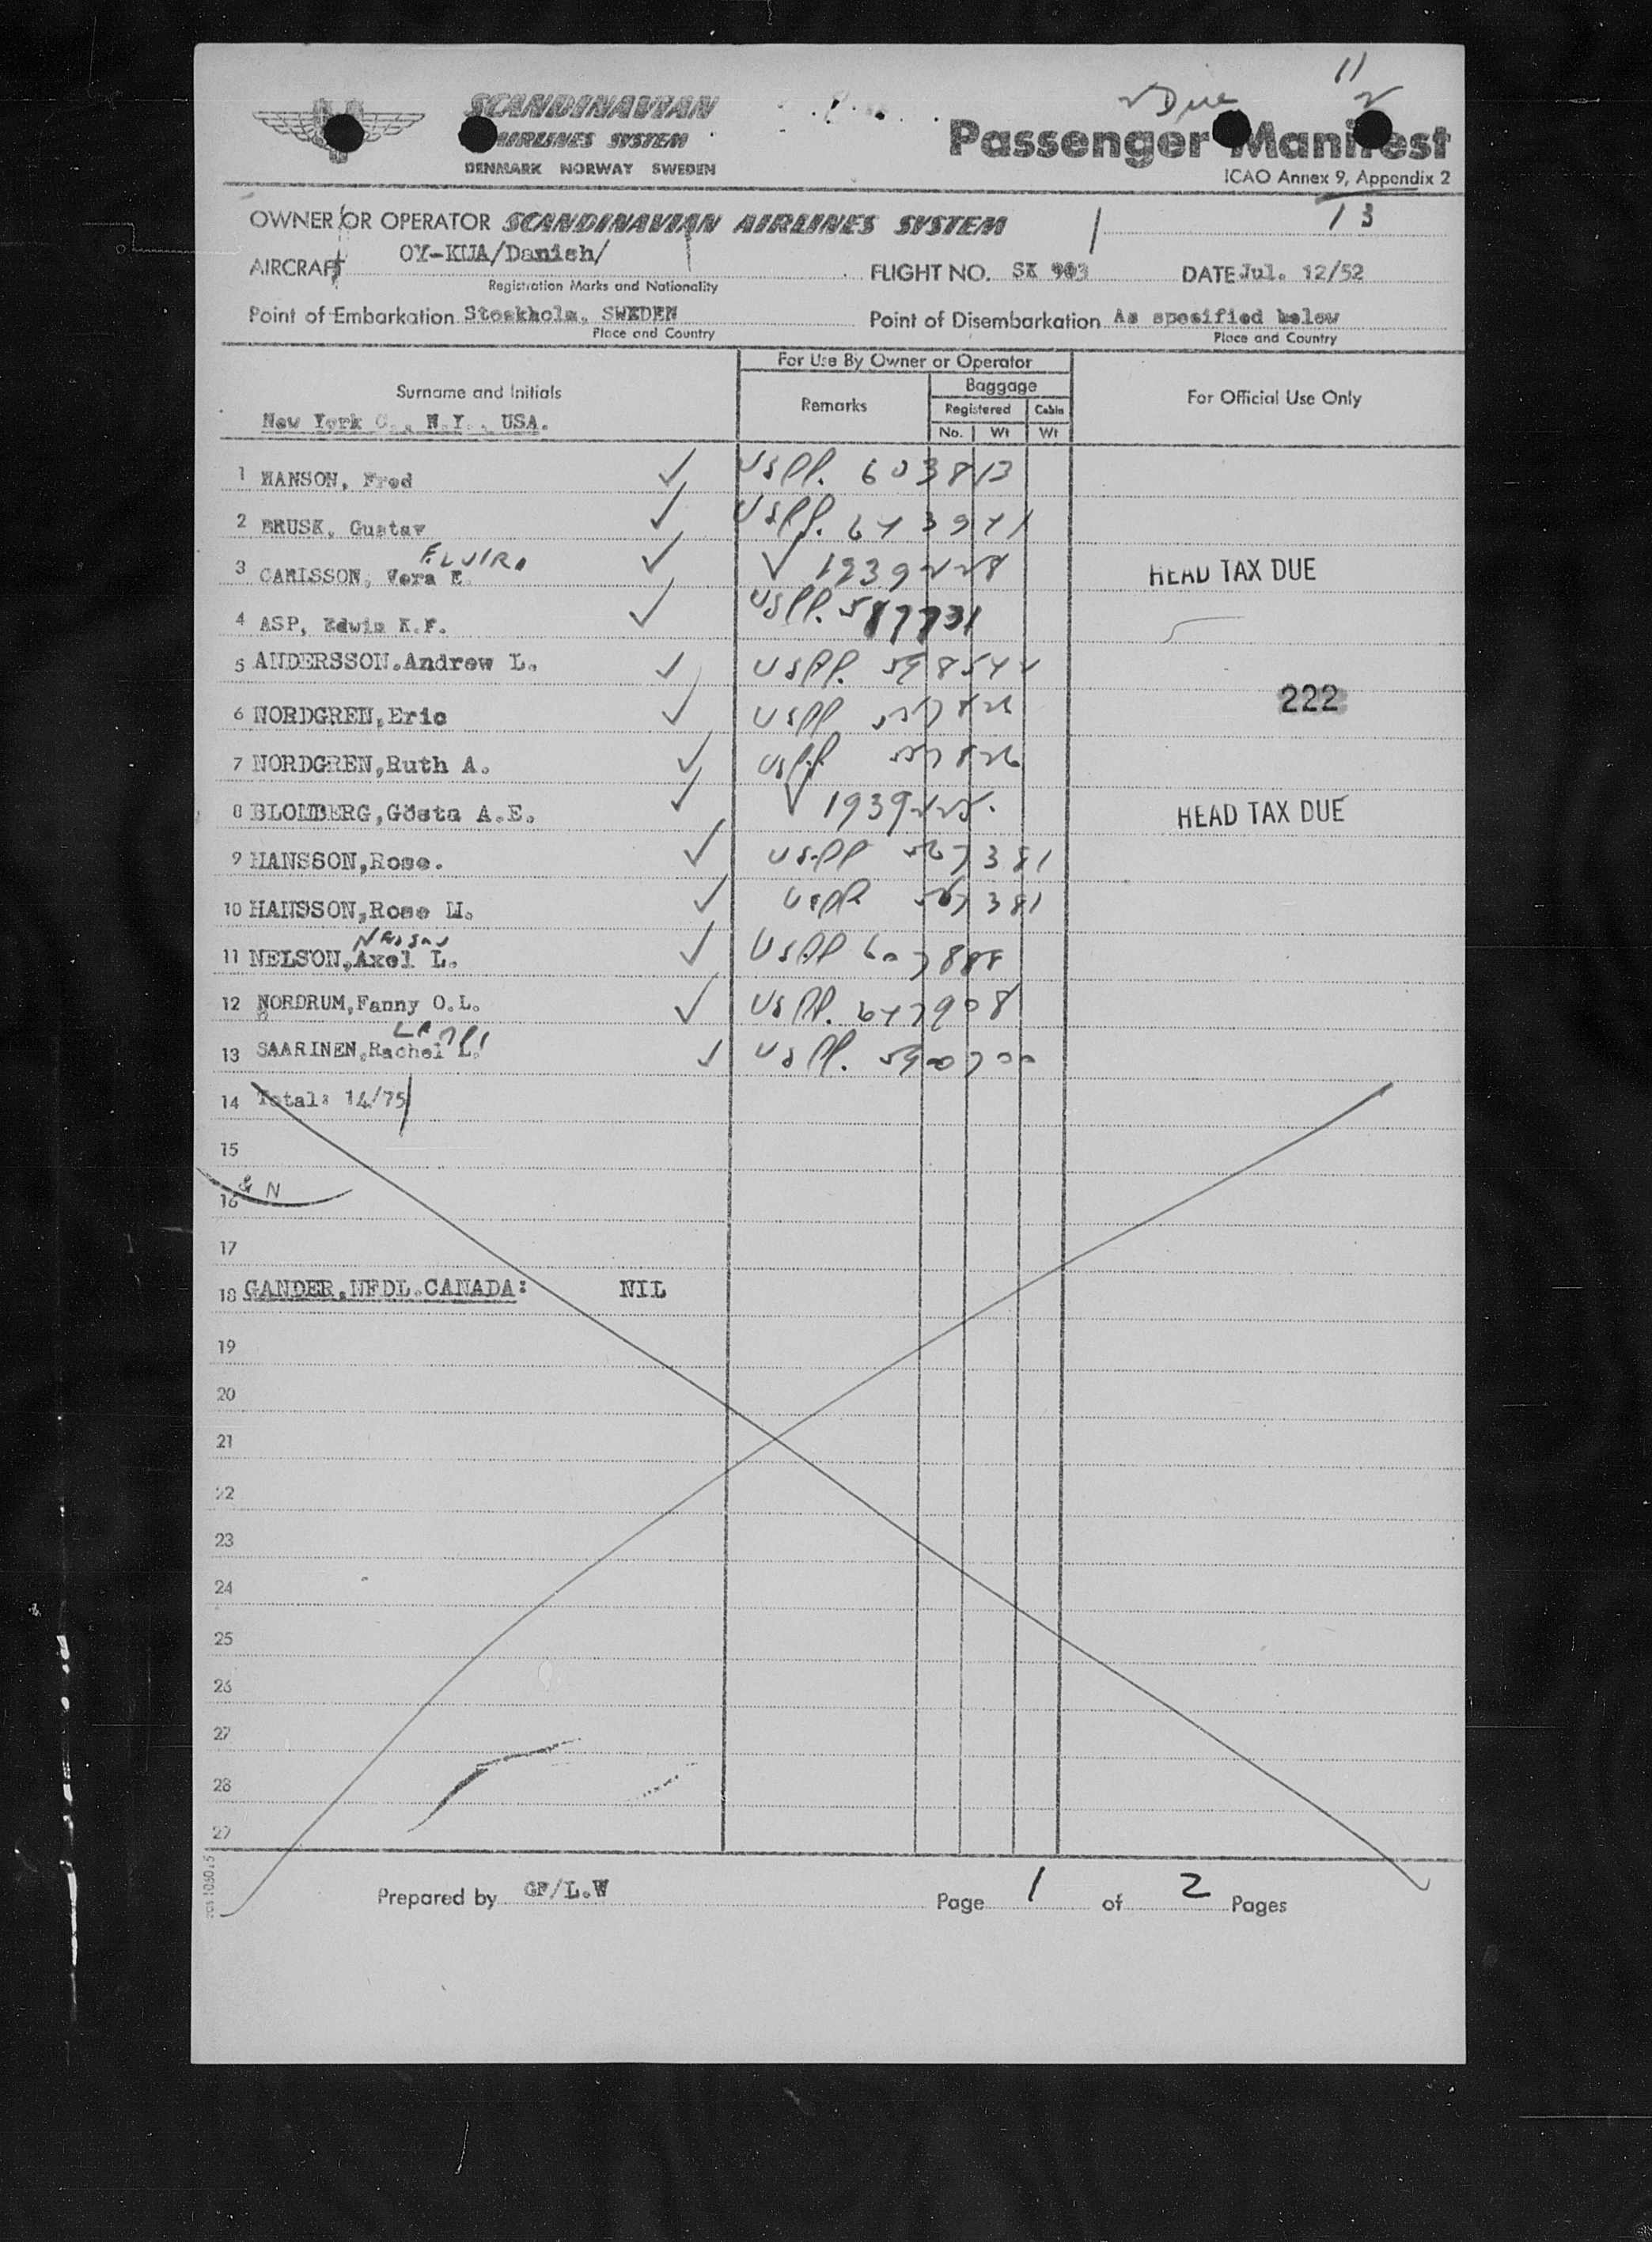 11
2 Due 2
SCANDINAVIAN
AIRLINES SYSTEM
DENMARK NORWAY SWEDEN
Passenger Manifest
ICAO Annex 9, Appendix 2
OWNER OR OPERATOR SCANDINAVIAN AIRLINES SYSTEM 13
AIRCRAFT OY-KUA/Danish/ FLIGHT NO. SK 903 DATE Jul. 12/52
Registration Marks and Nationality
Point of Embarkation Stockholm, SWEDEN Point of Disembarkation As specified below
Place and Country Place and Country
For Use By Owner or Operator
Surname and Initials Remarks Baggage For Official Use Only
Registered Cabin
New York C., N.Y., USA. No. Wt Wt
1 HANSON, Fred USPP. 603813
2 BRUSK, Gustav USPP. 643941
ELVIRA
3 CARLSSON, Vera E. 1939228 HEAD TAX DUE
4 ASP, Edwin K.F. USPP. 587731
5 ANDERSSON.Andrew L. USPP. 598544
222
6 NORDGREN,Eric USPP 557826
7 NORDGREN,Ruth A. USPP 557826
8 BLOMBERG,Gösta A.E. 1939225. HEAD TAX DUE
9 HANSSON,Rose. USPP 567381
10 HANSSON,Rose M. USPP 567381
11 NELSON,Axel L. USPP 607888
12 NORDRUM,Fanny O.L. USPP. 647908
LEMPI
13 SAARINEN,Rachel L. USPP. 590700
14 Total: 14/75
15
& N
16
17
18 GANDER,NFDL.CANADA: NIL
19
20
21
22
23
24
25
26
27
28
29
Prepared by GF/L.W Page 1 of 2 Pages